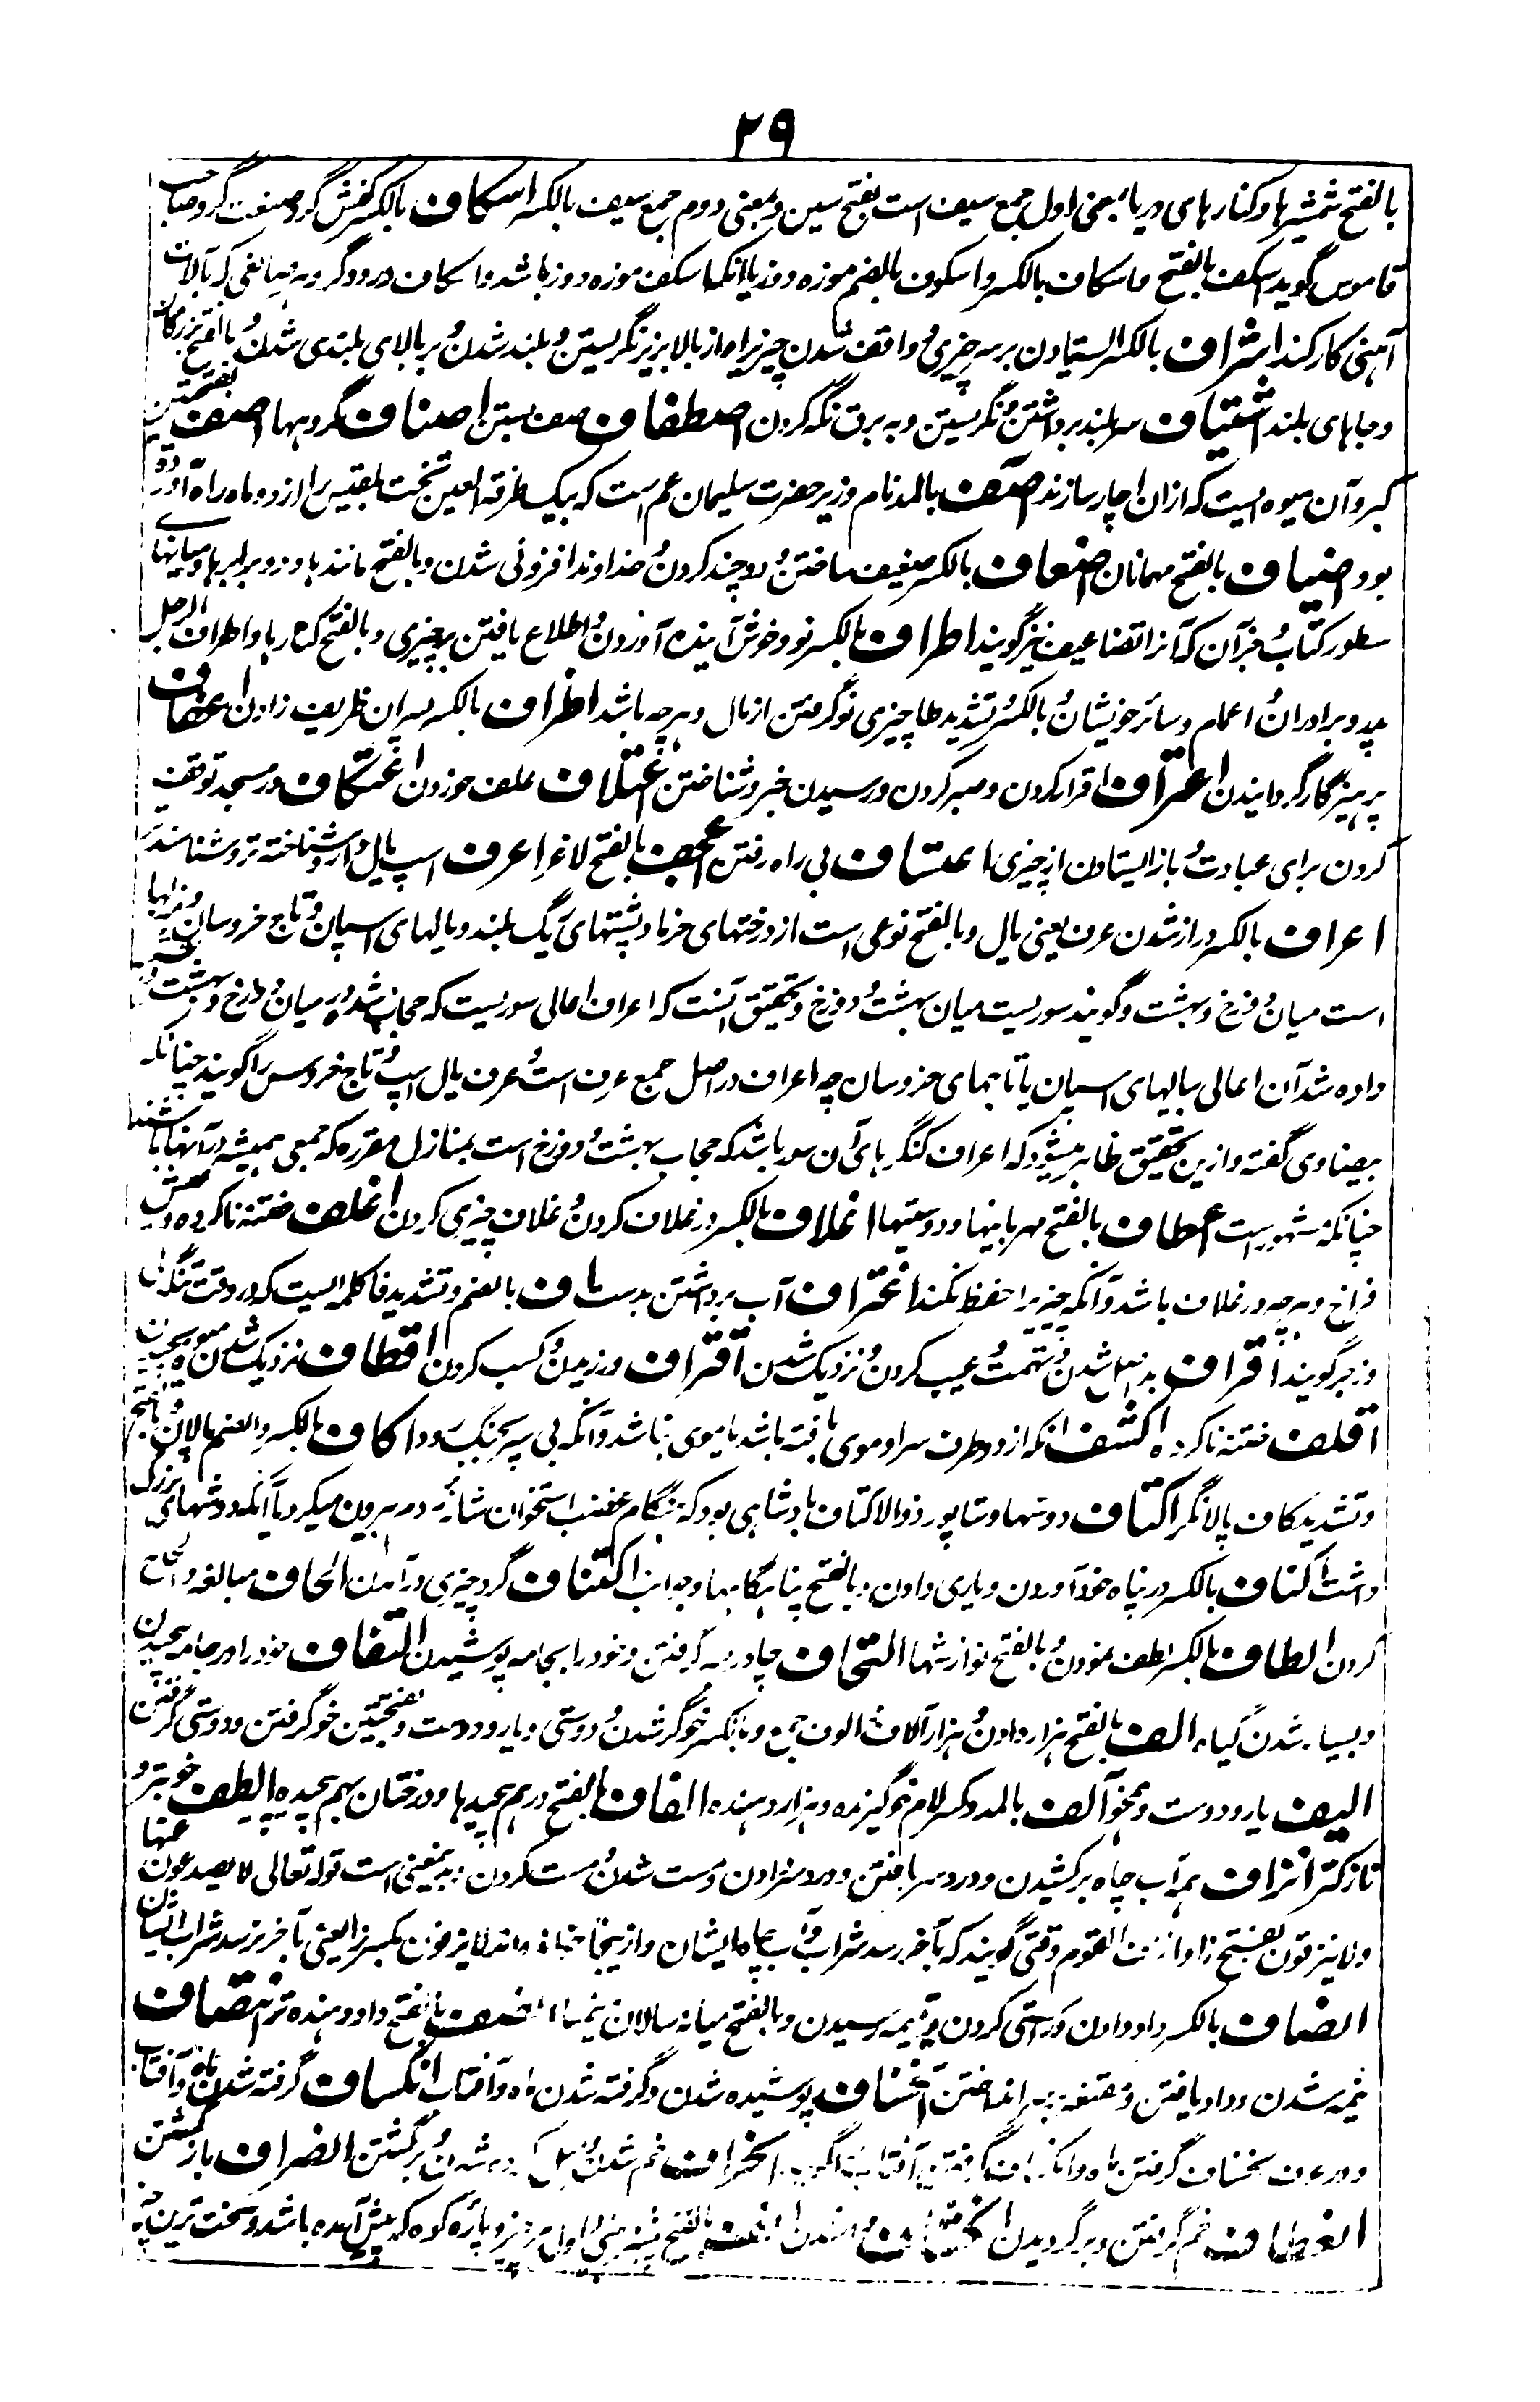 ۲۹
بالفتح شمشیرها و کنارهای دریا بمعنی اول جمع سیف است بفتح سین و بمعنی دوم جمع سیف بالکسر اسکاف بالکسر کفش گر و صنعت گر و صاحب
قاموس گوید اسکف بالفتح و اسکاف بالکسر و اسکوف بالضم موزه دوز یا آنکه اسکف موزه دوز باشد و اسکاف درودگر و هر صانعی که بآلات
آهنی کار کند اشراف بالکسر ایستادن بر سر چیزی و واقف شدن چیزیرا و از بالا بزیر نگریستن و بلند شدن و بر بالای بلندی شدن و بالفتح بزرگان
و جاهای بلند اشتیاف سر بلند برداشتن و نگریستن و به برق نگه کردن اصطفاف صف بستن اصناف گروهها اصف بفتحتین
کبر و آن میوه ایست که ازان اچار سازند آصف بالمد نام وزیر حضرت سلیمان عم است که بیک طرفة العین تخت بلقیس را از دو ماه راه آورده
بود اضیاف بالفتح مهمانان اضعاف بالکسر ضعیف ساختن و دوچند کردن و خداوند افزونی شدن و بالفتح مانندها و دو برابرها و میانهای
سطور کتاب و قرآن که آنرا تضاعیف نیز گویند اطراف بالکسر نو و خوش آینده آوردن و اطلاع یافتن بچیزی و بالفتح کنارها و اطراف الرجل
پدر و برادران و اعمام و سائر خویشان و بالکسر و تشدید طا چیزی نو گرفتن از مال و هرچه باشد اظراف بالکسر پسران ظریف زادن اعفاف
پرهیزگار گردانیدن اعتراف اقرار کردن و صبر کردن و رسیدن خبر و شناختن اعتلاف علف خوردن اعتکاف در مسجد توقف
کردن برای عبادت و باز ایستادن از چیزی اعتساف بی راه رفتن اعجف بالفتح لاغر اعرف اسپ یال دار و شناخته تر و شناسنده تر
اعراف بالکسر دراز شدن عرف یعنی یال و بالفتح نوعی است از درختهای خرما و پشتهای ریگ بلند و یالهای اسپان و تاج خروسان و منزلها
است میان دوزخ و بهشت و گویند سوریست میان بهشت و دوزخ و تحقیق آنست که اعراف اعالی سوریست که حجاب شده میان دوزخ و بهشت
داده شد آن اعالی بیالهای اسپان یا تاجهای خروسان چه اعراف در اصل جمع عرف است و عرف یال اسپ و تاج خروس را گویند چنانکه
بیضاوی گفته و ازین تحقیق ظاهر میشود که اعراف کنگرهای آن سور باشد که حجاب بهشت و دوزخ است بمنازل مقرره که جمعی همیشه در آنها باشند
چنانکه مشهور است اعطاف بالفتح مهربانیها و دوستیها اغلاف بالکسر در غلاف کردن و غلاف چیزی کردن اغلف ختنه ناکرده و عیش
فراخ و هرچه در غلاف باشد و آنکه چیزیرا حفظ نکند اغتراف آب برداشتن بدست اف بالضم و تشدید فا کلمه ایست که در وقت تنگدلی
و زجر گویند اقراف بد نژاد شدن و تهمت و عیب کردن و نزدیک شدن اقتراف ورزیدن و کسب کردن اقطاف نزدیک شدن میوه بچیدن
اقلف ختنه ناکرده اکشف آنکه از دو طرف سر او موی تافته باشد یا موی نباشد و آنکه بی سپر بجنگ رود اکاف بالکسر و الضم پالان و بالفتح
و تشدید کاف پالانگر اکتاف دوشها و شاپور ذوالاکتاف بادشاهی بود که هنگام غضب استخوان شانه مردم بیرون میکرد یا آنکه دوشهای بزرگ
داشت اکناف بالکسر در پناه خود آوردن و یاری دادن و بالفتح پناهگاهها و جوانب اکتناف گرد چیزی درآمدن الحاف مبالغه و الحاح
کردن الطاف بالکسر لطف نمودن و بالفتح نوازشها التحاف چادر بسر گرفتن و خود را بجامه پوشیدن التفاف خود را در جامه پیچیدن
و بسیار شدن گیاه الف بالفتح هزار دادن و هزار آلاف و الوف جمع و بالکسر خوگر شدن و دوستی و یار و دوست و بفتحتین خو گرفتن و دوستی گرفتن
الیف یار و دوست و همخو آلف بالمد و کسر لام خو گیرنده و هزار دهنده الفاف بالفتح درهم پیچیدها و درختان بهم پیچیده الطف خوبتر و
نازکتر انزاف همه آب چاه برکشیدن و درد سر یافتن و درد سر دادن و مست شدن و مست کردن و بدینمعنی است قوله تعالی لا یصدعون عنها
ولا ینزفون بفتح زا و انزف القوم وقتی گویند که بآخر رسد شراب و آب چاه ایشان و از ینجا خوانده اند لا ینزفون بکسر زا یعنی بآخر نرسد شراب ایشان
انصاف بالکسر داد دادن و راستی کردن و بنیمه رسیدن و بالفتح میانه سالان و نیمها انصف بالفتح داد دهنده تر انتصاف
نیمه شدن و داد یافتن و مقنعه بسر انداختن انکساف پوشیده شدن و گرفته شدن ماه و آفتاب انکساف گرفته شدن ماه و آفتاب
و در عرف خسف گرفتن ماه و انکساف گرفتن آفتاب را گویند انحراف خم شدن و برگشتن انصراف باز گشتن
انعطاف خم گرفتن و برگردیدن انف بالفتح بینی و اول هر چیز و پاره کوه که پیش آمده باشد و سخت ترین